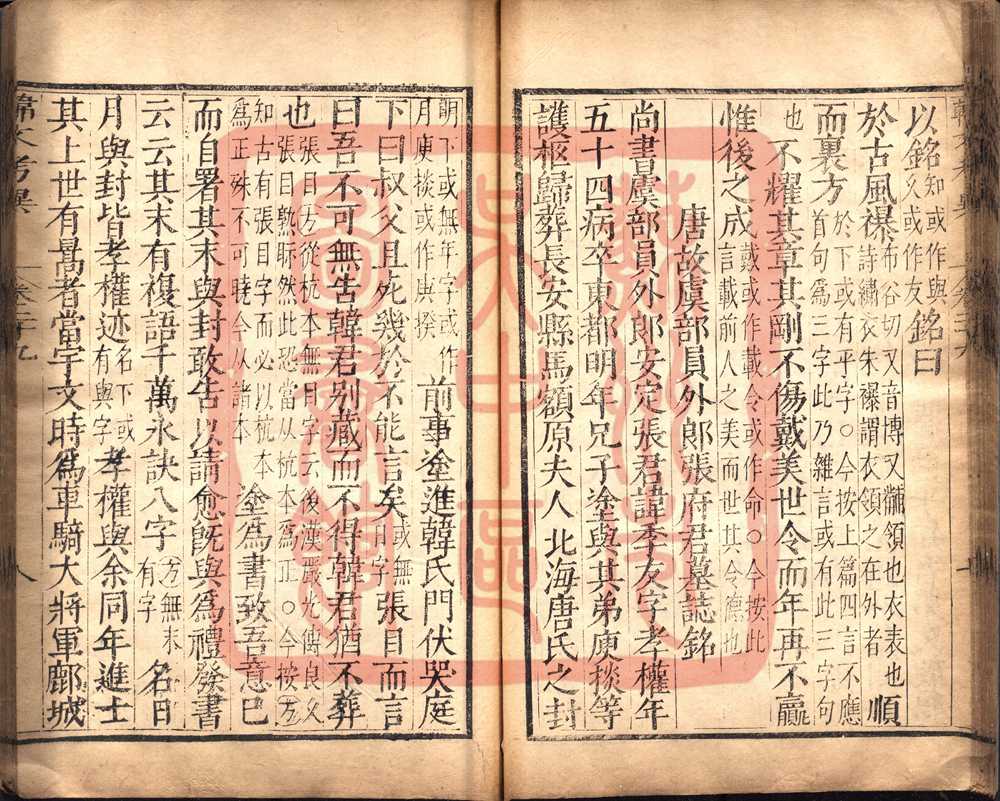 以銘知或作與久或作友銘曰
於古風襮布谷切又音博又黼領也衣表也詩繡衣朱襮謂衣領之在外者順
而裏方於下或有乎字○今按上篇四言不應首句爲三字此乃雜言或有此三字句
也不耀其章其剛不傷戴美世令而年再不贏
惟後之成戴或作載令或作命○今按此言載前人之美而世其令德也
唐故虞部員外郎張府君墓誌銘
尚書虞部員外郎安定張君諱季友字孝權年
五十四病卒東都明年兄子塗與其弟庾掞等
護柩歸葬長安縣馬額原夫人北海唐氏之封
明下或無年字或作月庾掞或作庚揆前事塗進韓氏門伏哭庭
下曰叔父且死幾於不能言矣或無曰字張目而言
曰吾不可無告韓君别藏而不得韓君猶不葬
也張目方從杭本無目字云後漢嚴光傳良久張目熟眎然此恐當从杭本爲正○今按方
知古有張目字而必以杭本爲正殊不可曉今从諸本塗爲書致吾意已
而自署其末與封敢告以請愈旣與爲禮發書
云云其末有複語千萬永訣八字方無末有字名曰
月與封皆孝權迹名下或有與字孝權與余同年進士
其上世有暠者當宇文時爲車騎大將軍鄜城
韓文考異
卷二十九
八